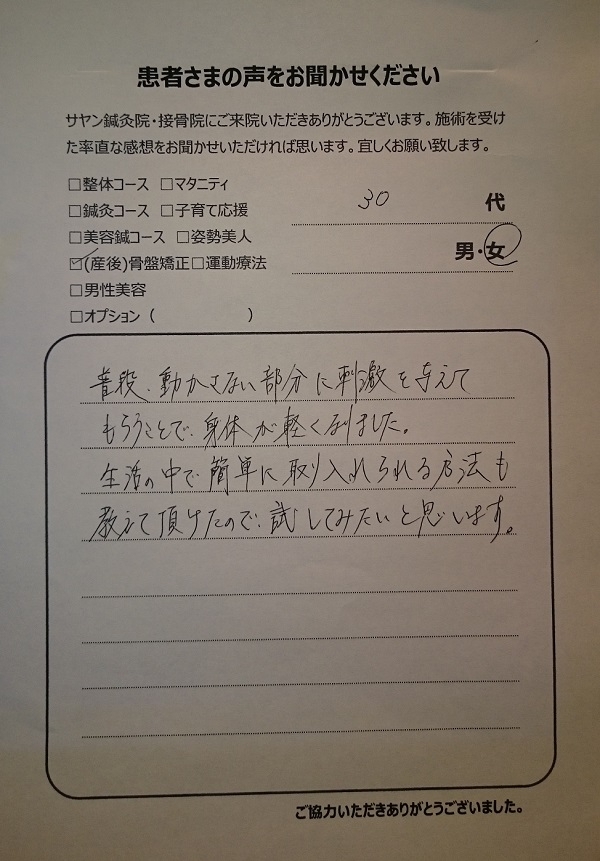 患者さまの声をお聞かせください
サヤン鍼灸院・接骨院にご来院いただきありがとうございます。施術を受け
た率直な感想をお聞かせいただければ思います。宜しくお願い致します。
□整体コース □マタニティ
30 代
□鍼灸コース □子育て応援
□美容鍼コース □姿勢美人
男・女
☑(産後)骨盤矯正□運動療法
□男性美容
□オプション ( )
普段、動かさない部分に刺激を与えて
もらうことで、身体が軽くなりました。
生活の中で簡単に取り入れられる方法も
教えて頂けたので、試してみたいと思います。
ご協力いただきありがとうございました。